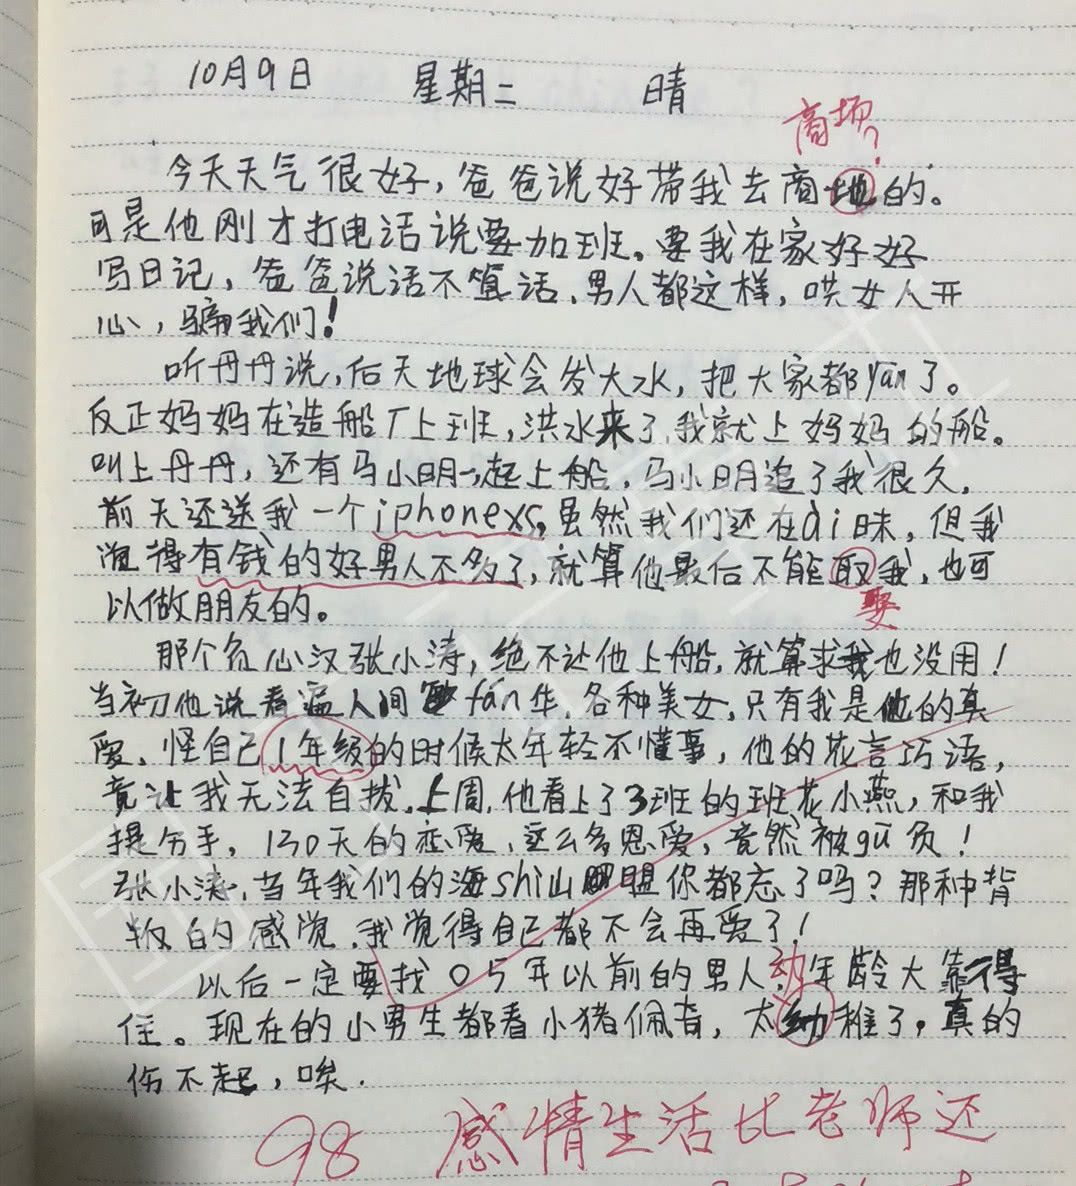 10月9日 星期二 晴
商场?
今天天气很好,爸爸说好带我去商地的。
可是他刚才打电话说要加班。要我在家好好
写日记,爸爸说话不算话,男人都这样,哄女人开
心,骗我们!
听丹丹说,后天地球会发大水,把大家都yān了。
反正妈妈在造船厂上班,洪水来了,我就上妈妈的船。
叫上丹丹,还有马小明一起上船,马小明追了我很久,
前天还送我一个iphonexs,虽然我们还在ài昧,但我
觉得有钱的好男人不多了,就算他最后不能取我,也可
娶
以做朋友的。
那个负心汉张小涛,绝不让他上船,就算求我也没用!
当初他说看遍人间fán华,各种美女,只有我是他的真
爱,怪自己1年级的时候太年轻不懂事,他的花言巧语,
竟让我无法自拔,上周,他看上了3班的班花小燕,和我
提分手,130天的恋爱,这么多恩爱,竟然被gū负!
张小涛,当年我们的海shì山盟你都忘了吗?那种背
叛的感觉,我觉得自己都不会再爱了!
以后一定要找05年以前的男人,年龄大靠得
住。现在的小男生都看小猪佩奇,太幼稚了,真的
伤不起,唉.
98 感情生活比老师还